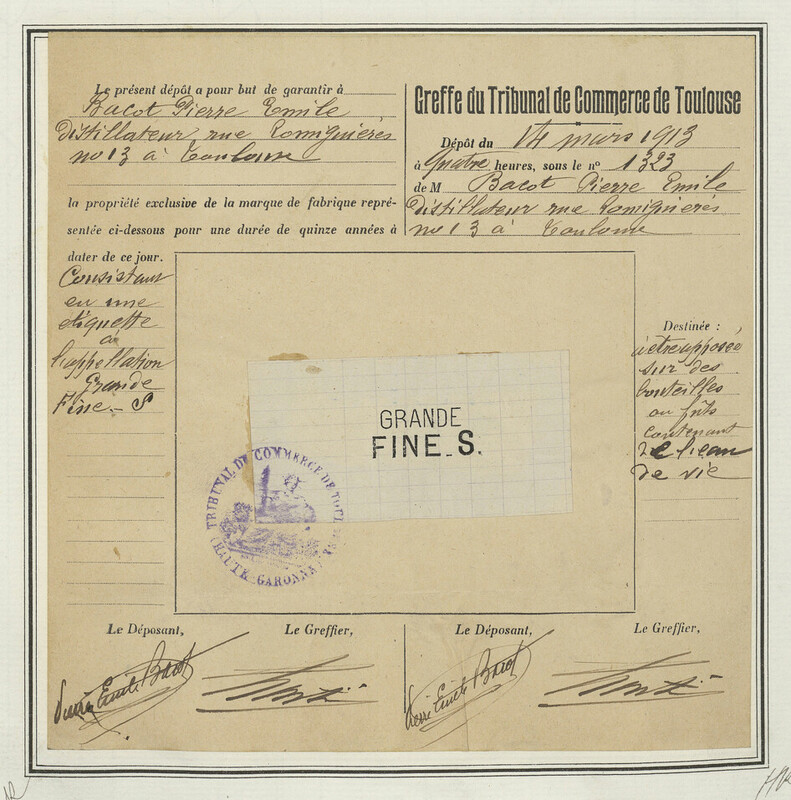 Le présent dépôt a pour but de garantir à
Bacot Pierre Emile
distillateur rue Romiguières
no 13 à Toulouse
la propriété exclusive de la marque de fabrique repré-
sentée ci-dessous pour une durée de quinze années à
dater de ce jour.
Consistant
en une
étiquette
à
l'appellation
Grande
Fine - S
Greffe du Tribunal de Commerce de Toulouse
Dépôt du 14 mars 1913
à Quatre heures, sous le nº 1323
de M Bacot Pierre Emile
distillateur rue Romiguières
no 13 à Toulouse
GRANDE
FINE_S.
TRIBUNAL DE COMMERCE DE TOUL
(HAUTE-GARONNE)
Destinée :
à être apposée
sur des
bouteilles
ou fûts
contenant
de l'eau
de vie
Le Déposant,
Le Greffier,
Le Déposant,
Le Greffier,
Pierre Emile Bacot
Pierre Emile Bacot